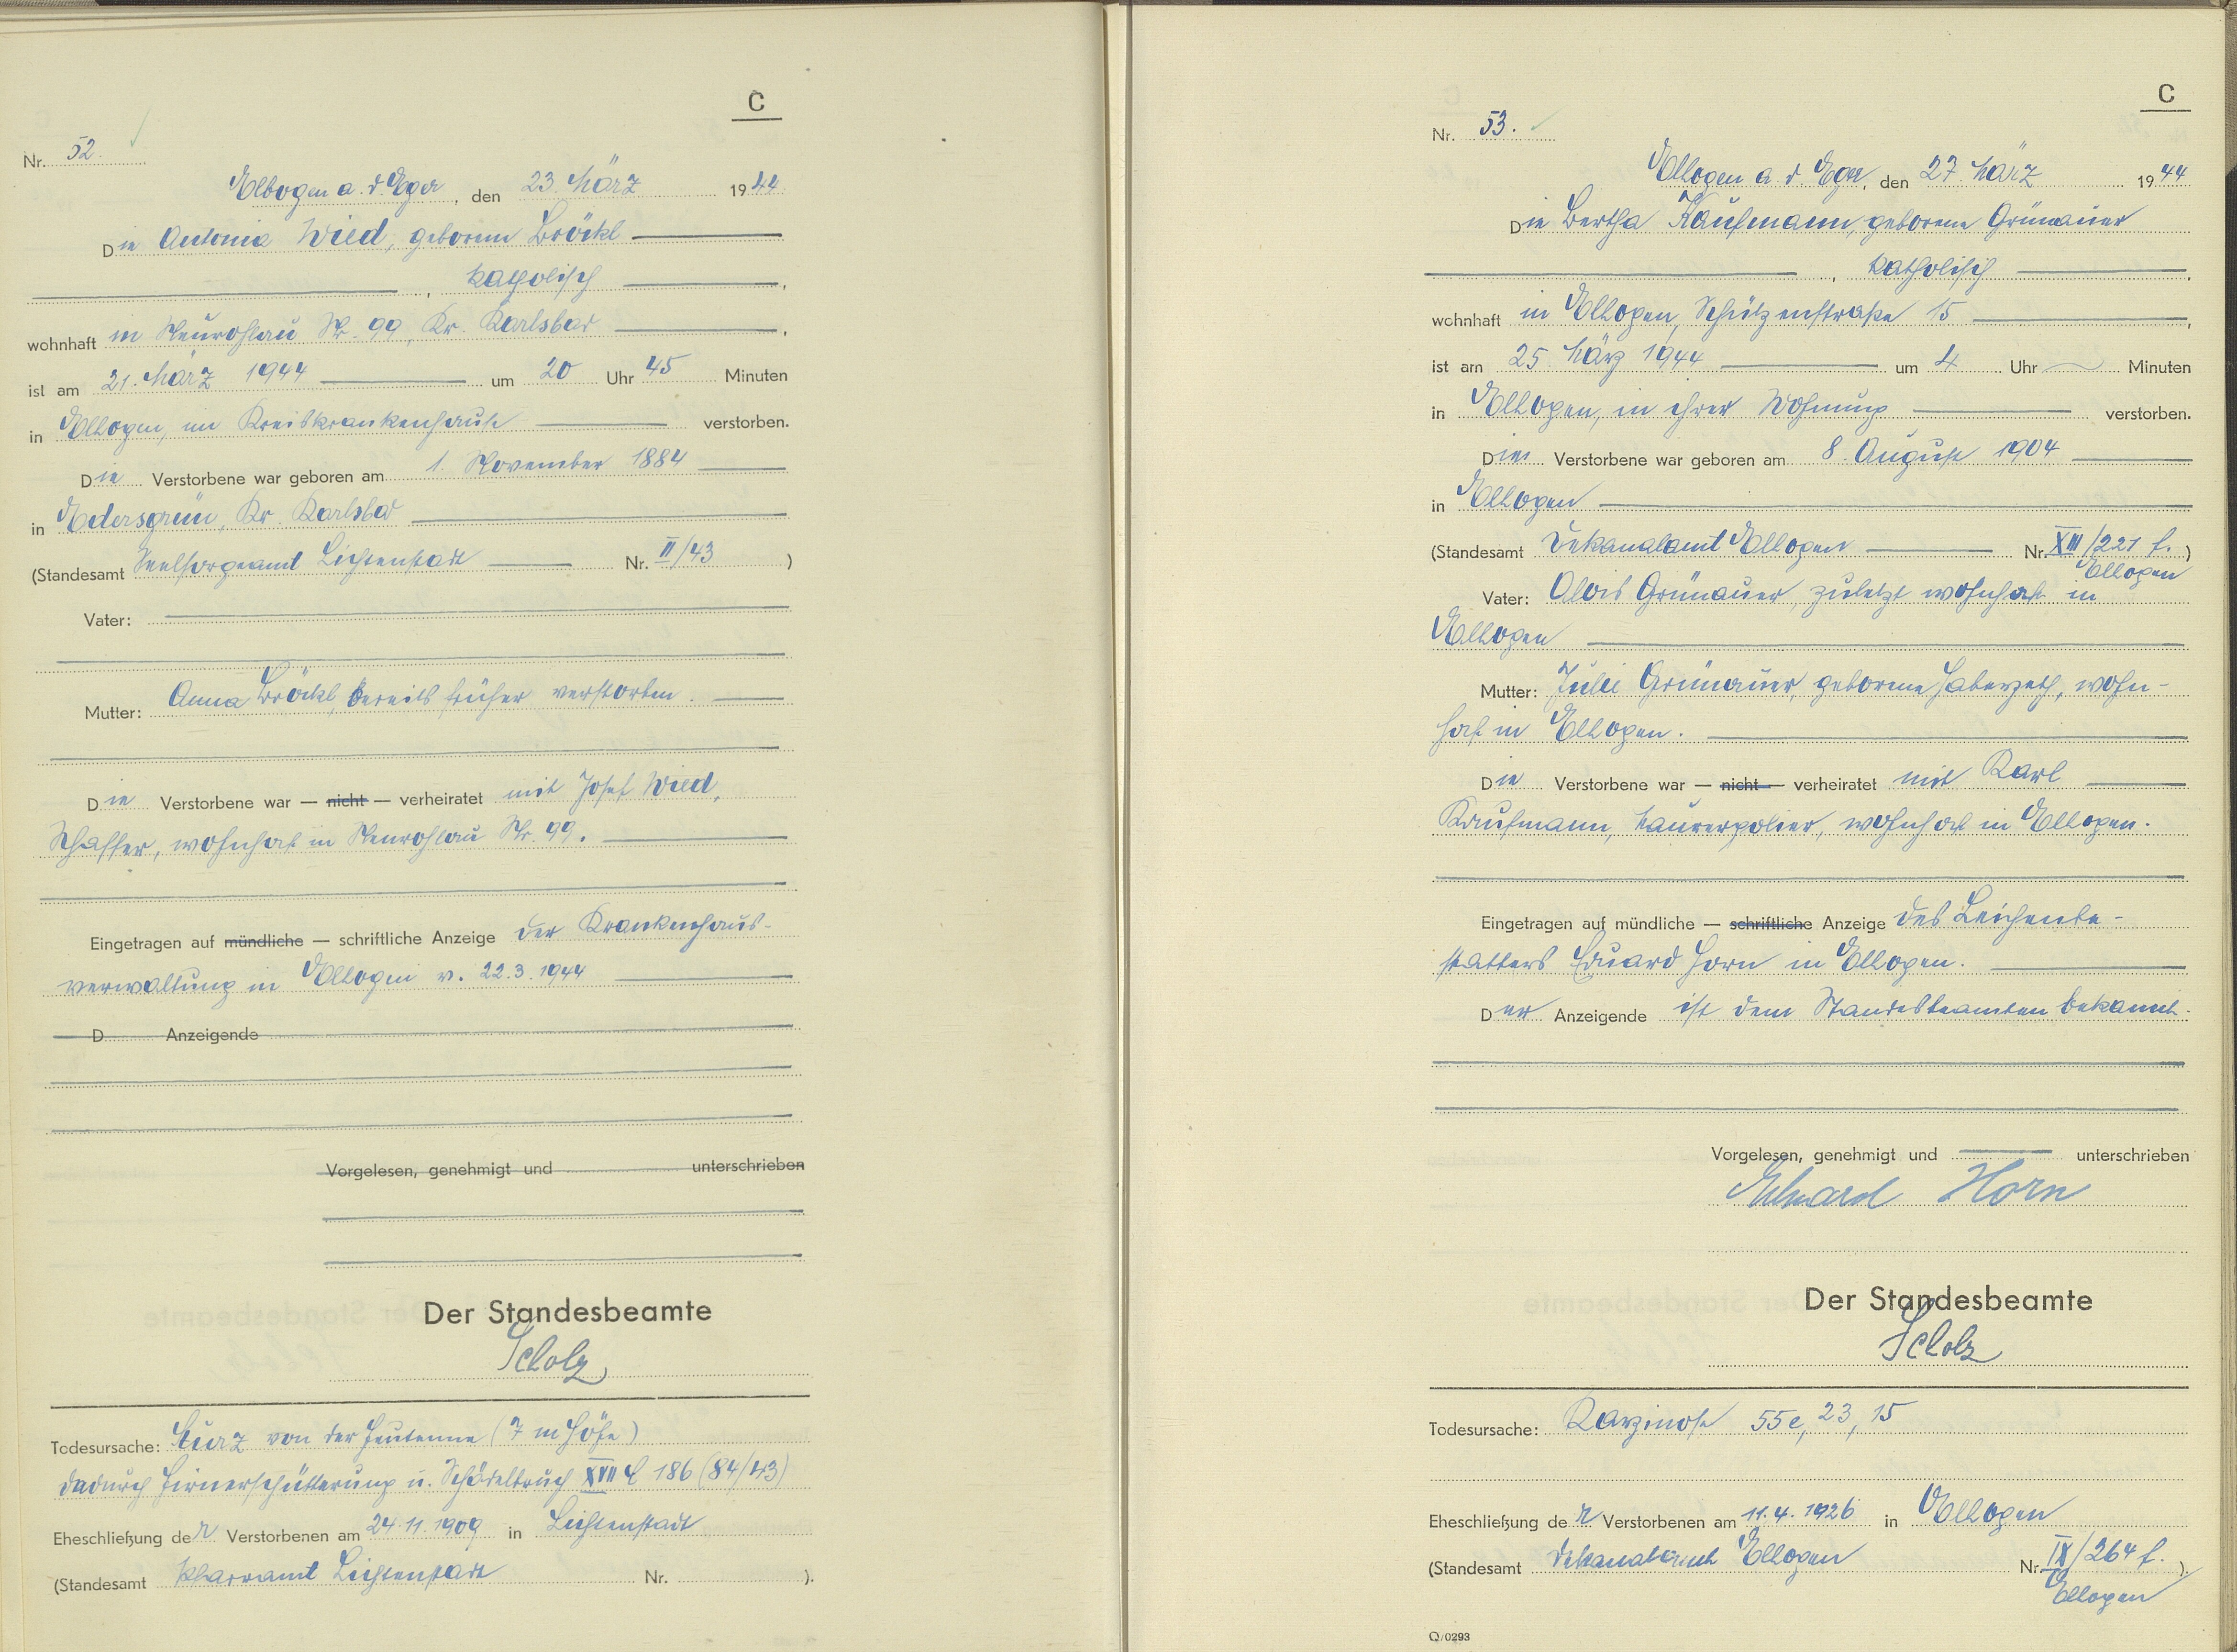 C
Nr. 52.
Elbogen a. d. Eger, den 23. März 1944
Die Antonia Wied, geborene Bröckl
, katholisch ,
wohnhaft in Neurohlau Nr. 99, Kr. Karlsbad ,
ist am 21. März 1944 um 20 Uhr 45 Minuten
in Elbogen, im Kreiskrankenhause verstorben.
Die Verstorbene war geboren am 1. November 1884
in Edersgrün, Kr. Karlsbad
(Standesamt Seelsorgeamt Lichtenstadt Nr. II/43 )
Vater:
Mutter: Anna Bröckl, bereits früher verstorben.
Die Verstorbene war — nicht — verheiratet mit Josef Wied,
Schaffer, wohnhaft in Neurohlau Nr. 99.
Eingetragen auf mündliche — schriftliche Anzeige der Krankenhaus-
verwaltung in Elbogen v. 22.3.1944
D Anzeigende
Vorgelesen, genehmigt und unterschrieben
Der Standesbeamte
Scholz
Todesursache: Sturz von der Heutenne (7 m Höhe)
dadurch Hirnerschütterung u. Schädelbruch XVII 186 (84/43)
Eheschließung der Verstorbenen am 24.11.1909 in Lichtenstadt
(Standesamt Pfarramt Lichtenstadt Nr. ).
C
Nr. 53.
Elbogen a. d. Eger, den 27. März 1944
Die Bertha Kaufmann, geborene Grünauer
, katholisch .
wohnhaft in Elbogen, Schützenstraße 15 ,
ist am 25. März 1944 um 4 Uhr Minuten
in Elbogen, in ihrer Wohnung verstorben.
Die Verstorbene war geboren am 8. August 1904
in Elbogen
(Standesamt Dekanalamt Elbogen Nr. XIII/221 f. )
Elbogen
Vater: Alois Grünauer, zuletzt wohnhaft in
Elbogen
Mutter: Julie Grünauer, geborene Haberzeth, wohn-
haft in Elbogen.
Die Verstorbene war — nicht — verheiratet mit Karl
Kaufmann, Maurerpolier, wohnhaft in Elbogen.
Eingetragen auf mündliche — schriftliche Anzeige des Leichenbe-
statters Eduard Horn in Elbogen.
Der Anzeigende ist dem Standesbeamten bekannt.
Vorgelesen, genehmigt und unterschrieben
Eduard Horn
Der Standesbeamte
Scholz
Todesursache: Karzinose 55e, 23, 15
Eheschließung der Verstorbenen am 11.4.1926 in Elbogen
(Standesamt Dekanalamt Elbogen Nr. IX/264 f. ).
Elbogen
Q/0293